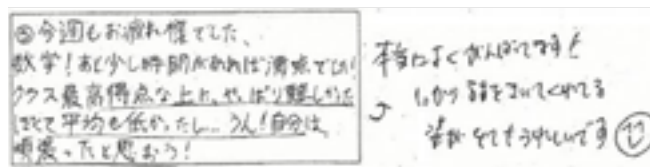 ⑤今週もお疲れ様でした、
数学!あと少し時間があれば満点でした!
クラス最高得点な上に、やっぱり難しかった
平均も低かったし…うん!自分は、
頑張ったと思おう!
本当によくがんばってます!
しっかり話をきいてくれてる
姿がとてもうれしいです